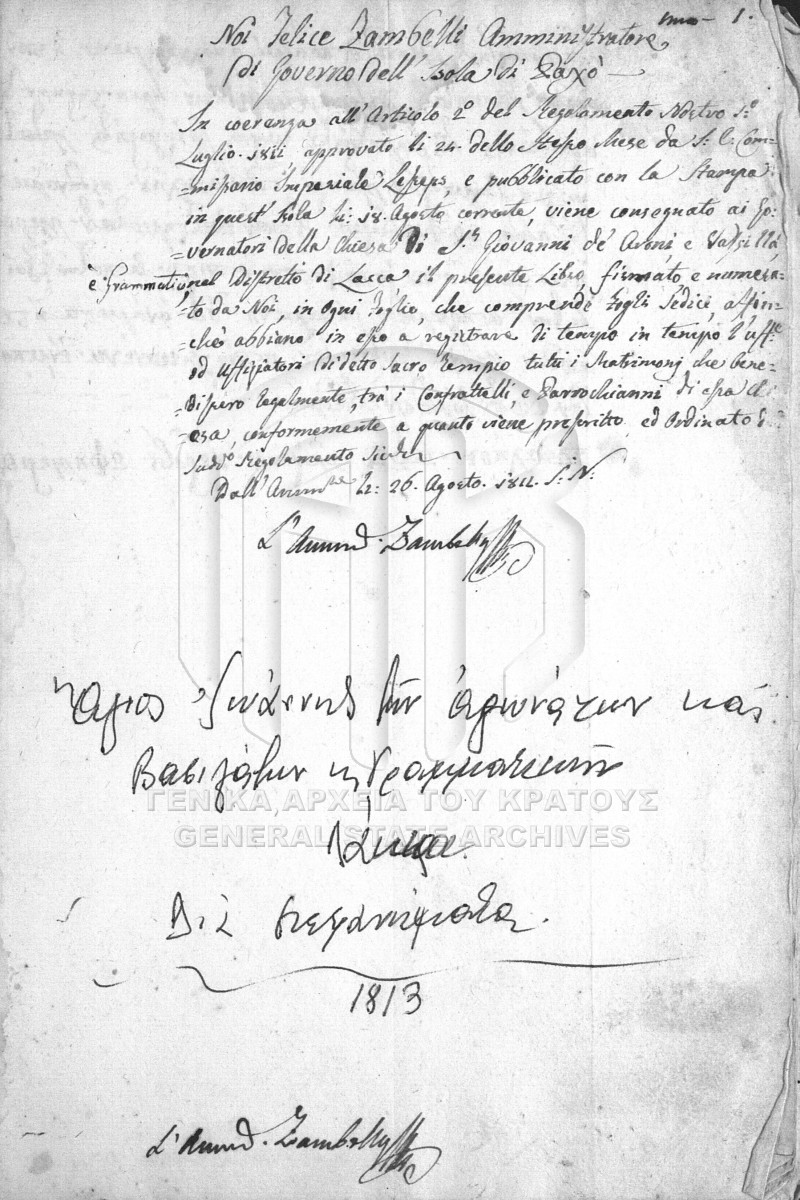 1.
Noi Felice Zambelli Amministratore
di Governo dell' Isola di Paxò
In coerenza all' Articolo 2º del Regolamento Nostro
Luglio. 1811 approvato li 24. dello stesso Mese da S: E: Com=
=missario Imperiale Lesseps, e pubblicato con la Stampa
in quest' Isola li: 18. Agosto corrente, viene consegnato ai Go=
=vernatori della Chiesa di S.n Giovanni de' Aroni e Vassillà,
è Grammatico nel Distretto di Lacca il presente Libro, firmato e numera=
=to da Noi, in ogni foglio, che comprende fogli Sedici, affin=
=chè abbiano in esso a registrare di tempo in tempo
ed uffiziatori di detto Sacro tempio tutti i Matrimonj che bene=
=dissero legalmente, trà i Confrattelli, e Parrochianni di essa Chi
=esa, conformemente a quanto viene prescritto ed Ordinato
Regolamento
Dall' li: 26. Agosto. 1811. S: N:
L' Ammd. Zambelly
Άγιος Ιωάννης των αρωνάτων και
Βασιλάτων κ Γραμματικών
Λάκκα.
Διά στεφανώματα.
1813
L' Ammd. Zambelly
ΓΕΝΙΚΑ ΑΡΧΕΙΑ ΤΟΥ ΚΡΑΤΟΥΣ
GENERAL STATE ARCHIVES